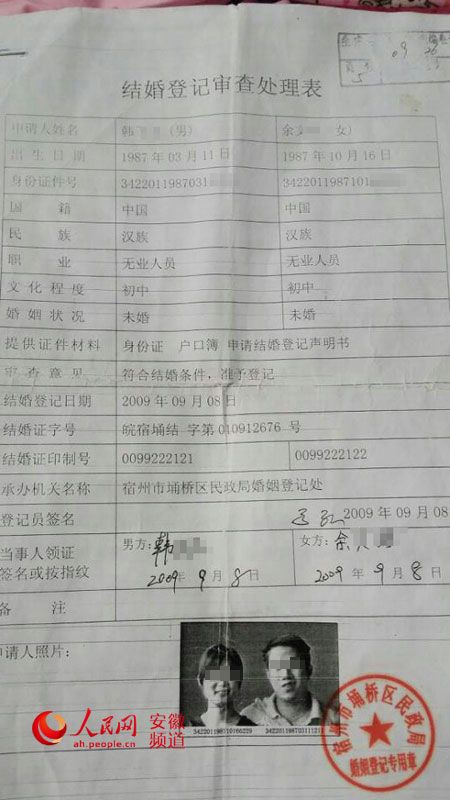 09 26
结婚登记审查处理表
申请人姓名 韩 (男) 余 女)
出生日期 1987年03月11日 1987年10月16日
身份证件号 3422011987031 3422011987101
国籍 中国 中国
民族 汉族 汉族
职业 无业人员 无业人员
文化程度 初中 初中
婚姻状况 未婚 未婚
提供证件材料 身份证 户口簿 申请结婚登记声明书
审查意见 符合结婚条件，准予登记
结婚登记日期 2009年09月08日
结婚证字号 皖宿埇结 字第010912676 号
结婚证印制号 0099222121 0099222122
承办机关名称 宿州市埇桥区民政局婚姻登记处
登记员签名 2009年09月08
当事人领证 男方：韩 女方：余
签名或按指纹 2009年9月8日 2009年9月8日
备注
申请人照片：
人民网 安徽频道
ah.people.cn
宿州市埇桥区民政局
婚姻登记专用章